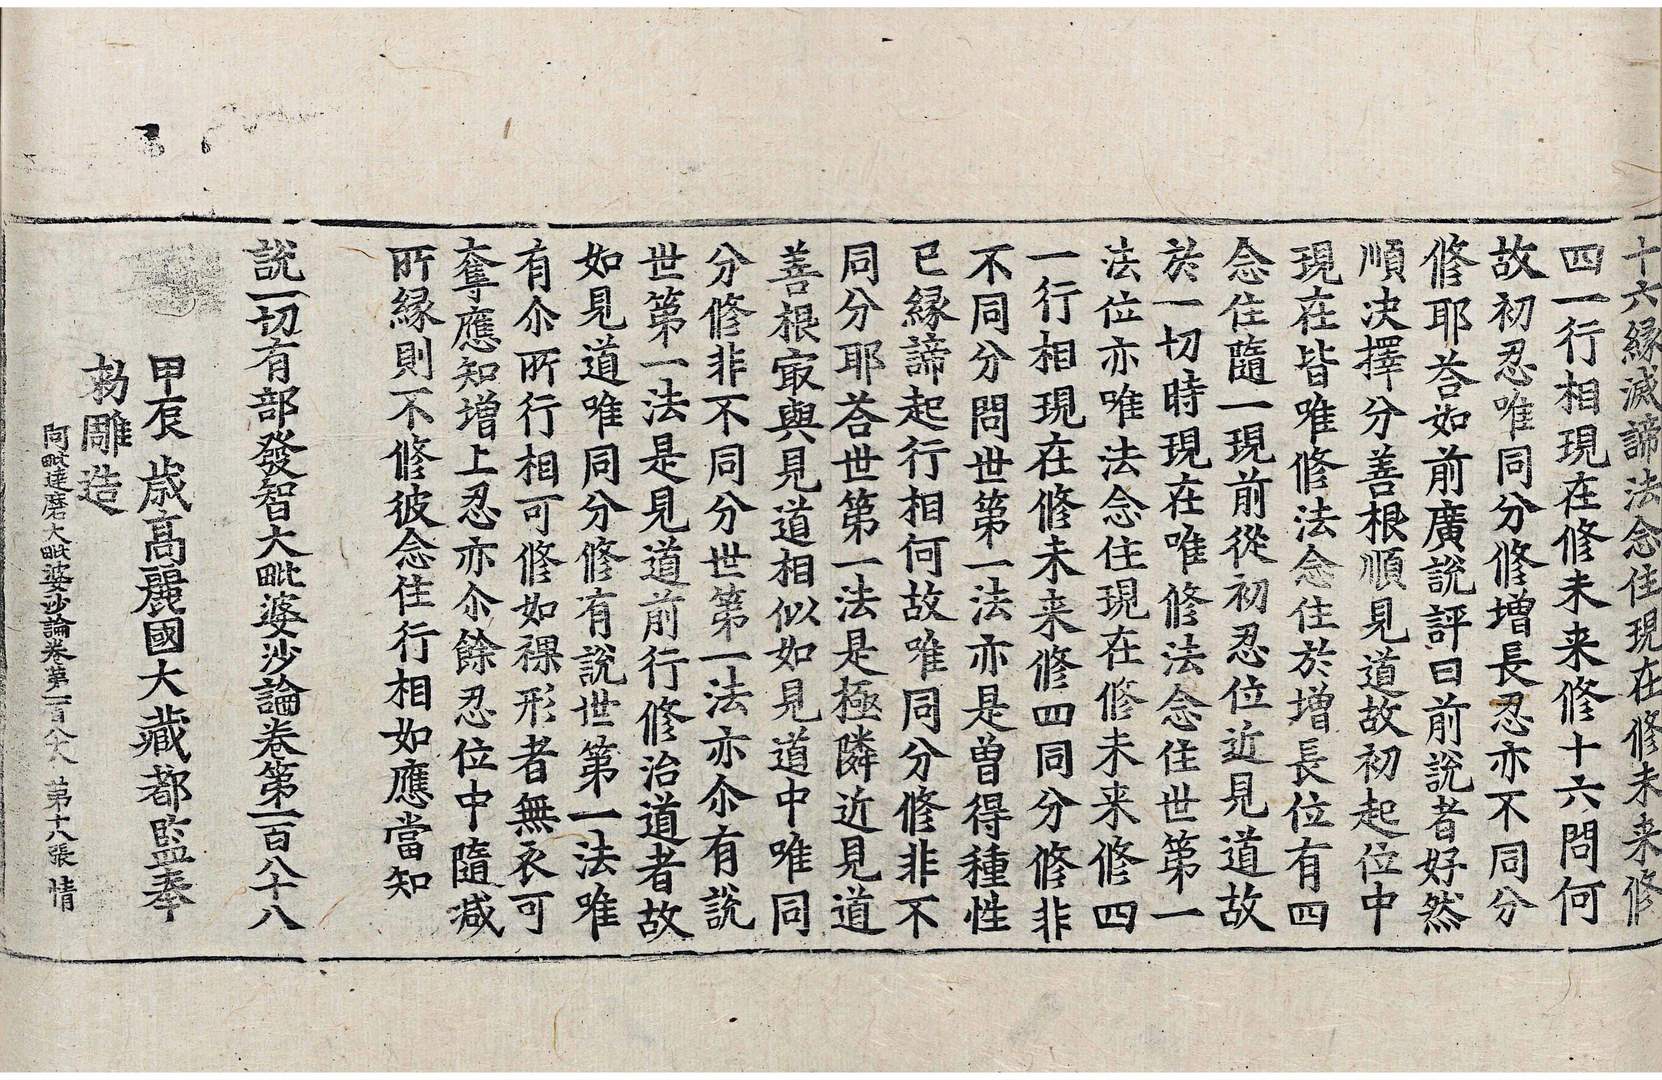 十六縁滅諦法念住現在修未来修
四一行相現在修未来修十六問何
故初忍唯同分修增長忍亦不同分
修耶荅如前廣說評曰前說者好然
順决擇分善根順見道故初起位中
現在皆唯修法念住於增長位有四
念住隨一現前從初忍位近見道故
於一切時現在唯修法念住世第一
法位亦唯法念住現在修未来修四
一行相現在修未来修四同分修非
不同分問世第一法亦是曾得種性
已縁諦起行相何故唯同分修非不
同分耶荅世第一法是極隣近見道
善根㝡與見道相似如見道中唯同
分修非不同分世第一法亦尒有說
世第一法是見道前行修治道者故
如見道唯同分修有說世第一法唯
有尒所行相可修如裸形者無衣可
奪應知增上忍亦尒餘忍位中隨减
所縁則不修彼念住行相如應當知
說一切有部發智大毗婆沙論卷第一百八十八
甲辰歳高麗國大藏都監奉
勑雕造
阿毗達磨大毗婆沙論卷第一百八十八 第十八張 情